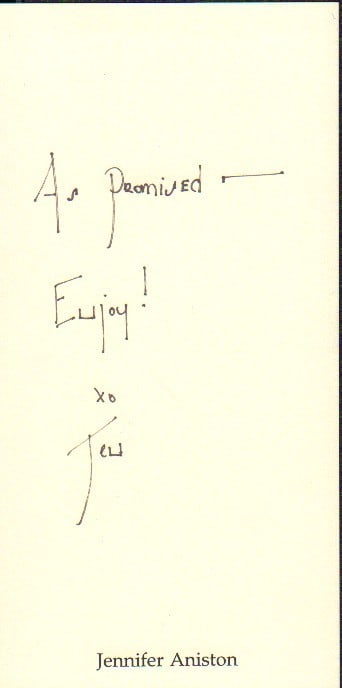 As Promised —
Enjoy!
xo
Jen
Jennifer Aniston